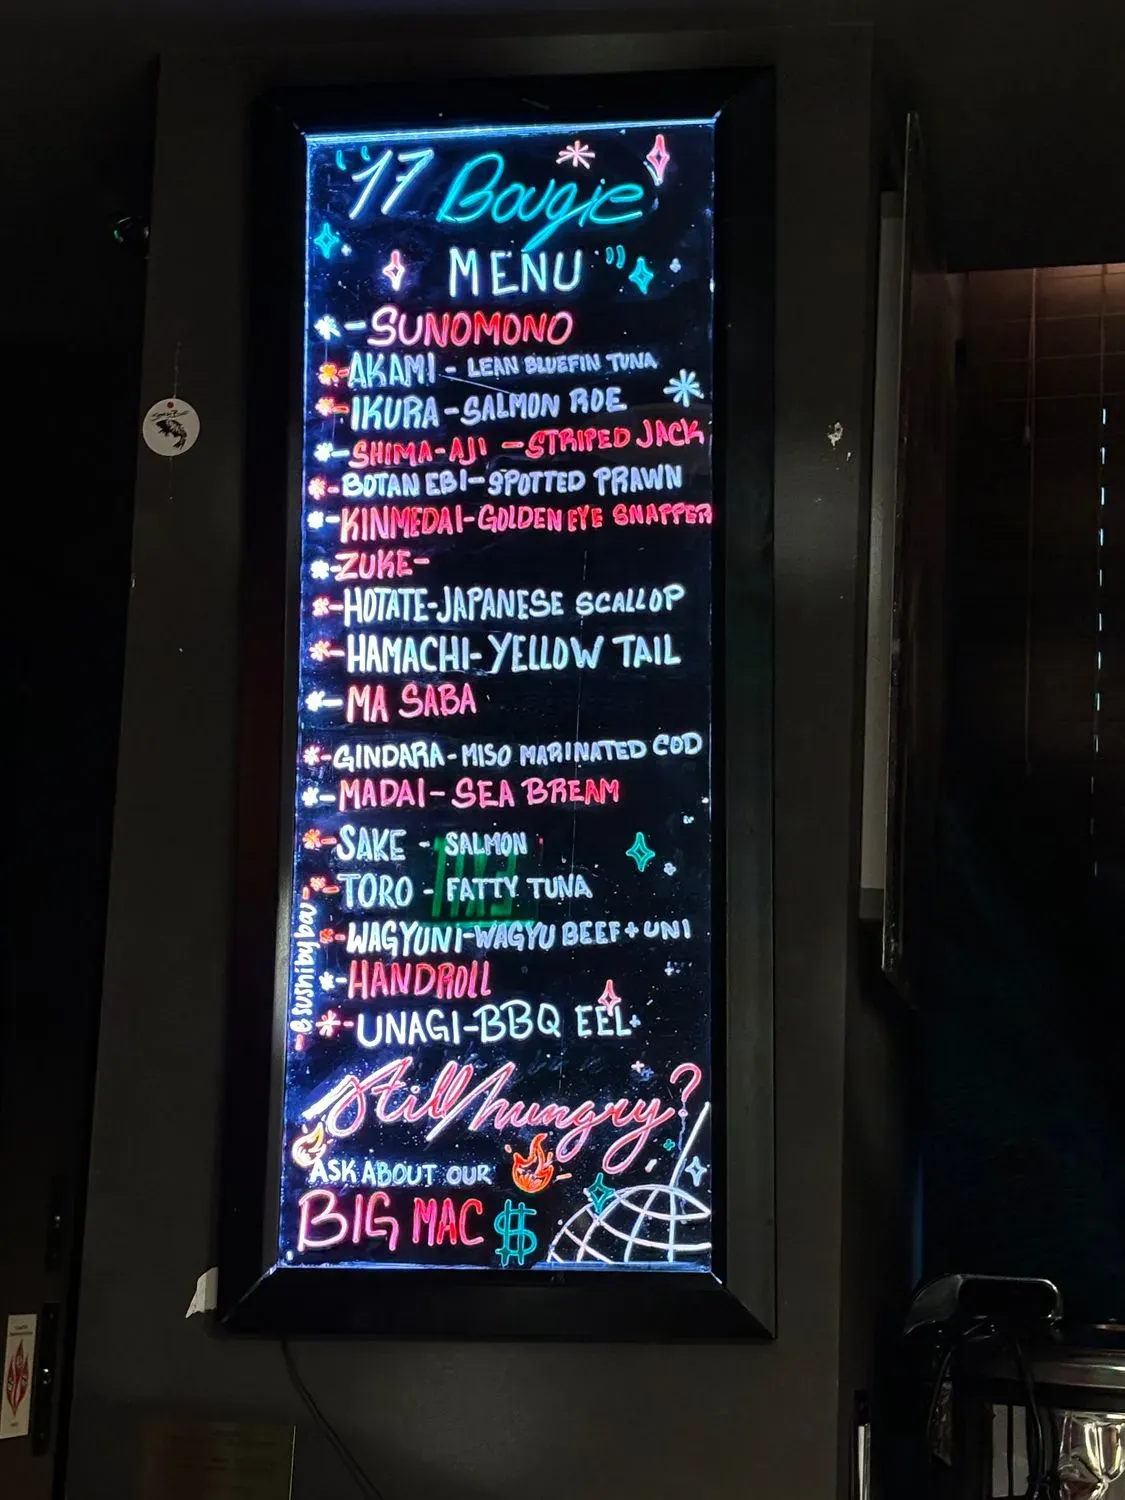 "17 Bougie
MENU"
-SUNOMONO
-AKAMI - LEAN BLUEFIN TUNA
-IKURA-SALMON ROE
-SHIMA-AJI - STRIPED JACK
-BOTAN EBI-SPOTTED PRAWN
-KINMEDAI-GOLDEN EYE SNAPPER
-ZUKE-
-HOTATE-JAPANESE SCALLOP
-HAMACHI-YELLOW TAIL
-MA SABA
-GINDARA-MISO MARINATED COD
-MADAI- SEA BREAM
-SAKE - SALMON
-TORO - FATTY TUNA
-WAGYUNI-WAGYU BEEF+UNI
-HANDROLL
-UNAGI-BBQ EEL
@sushibybou
Still hungry?
ASK ABOUT OUR
BIG MAC $